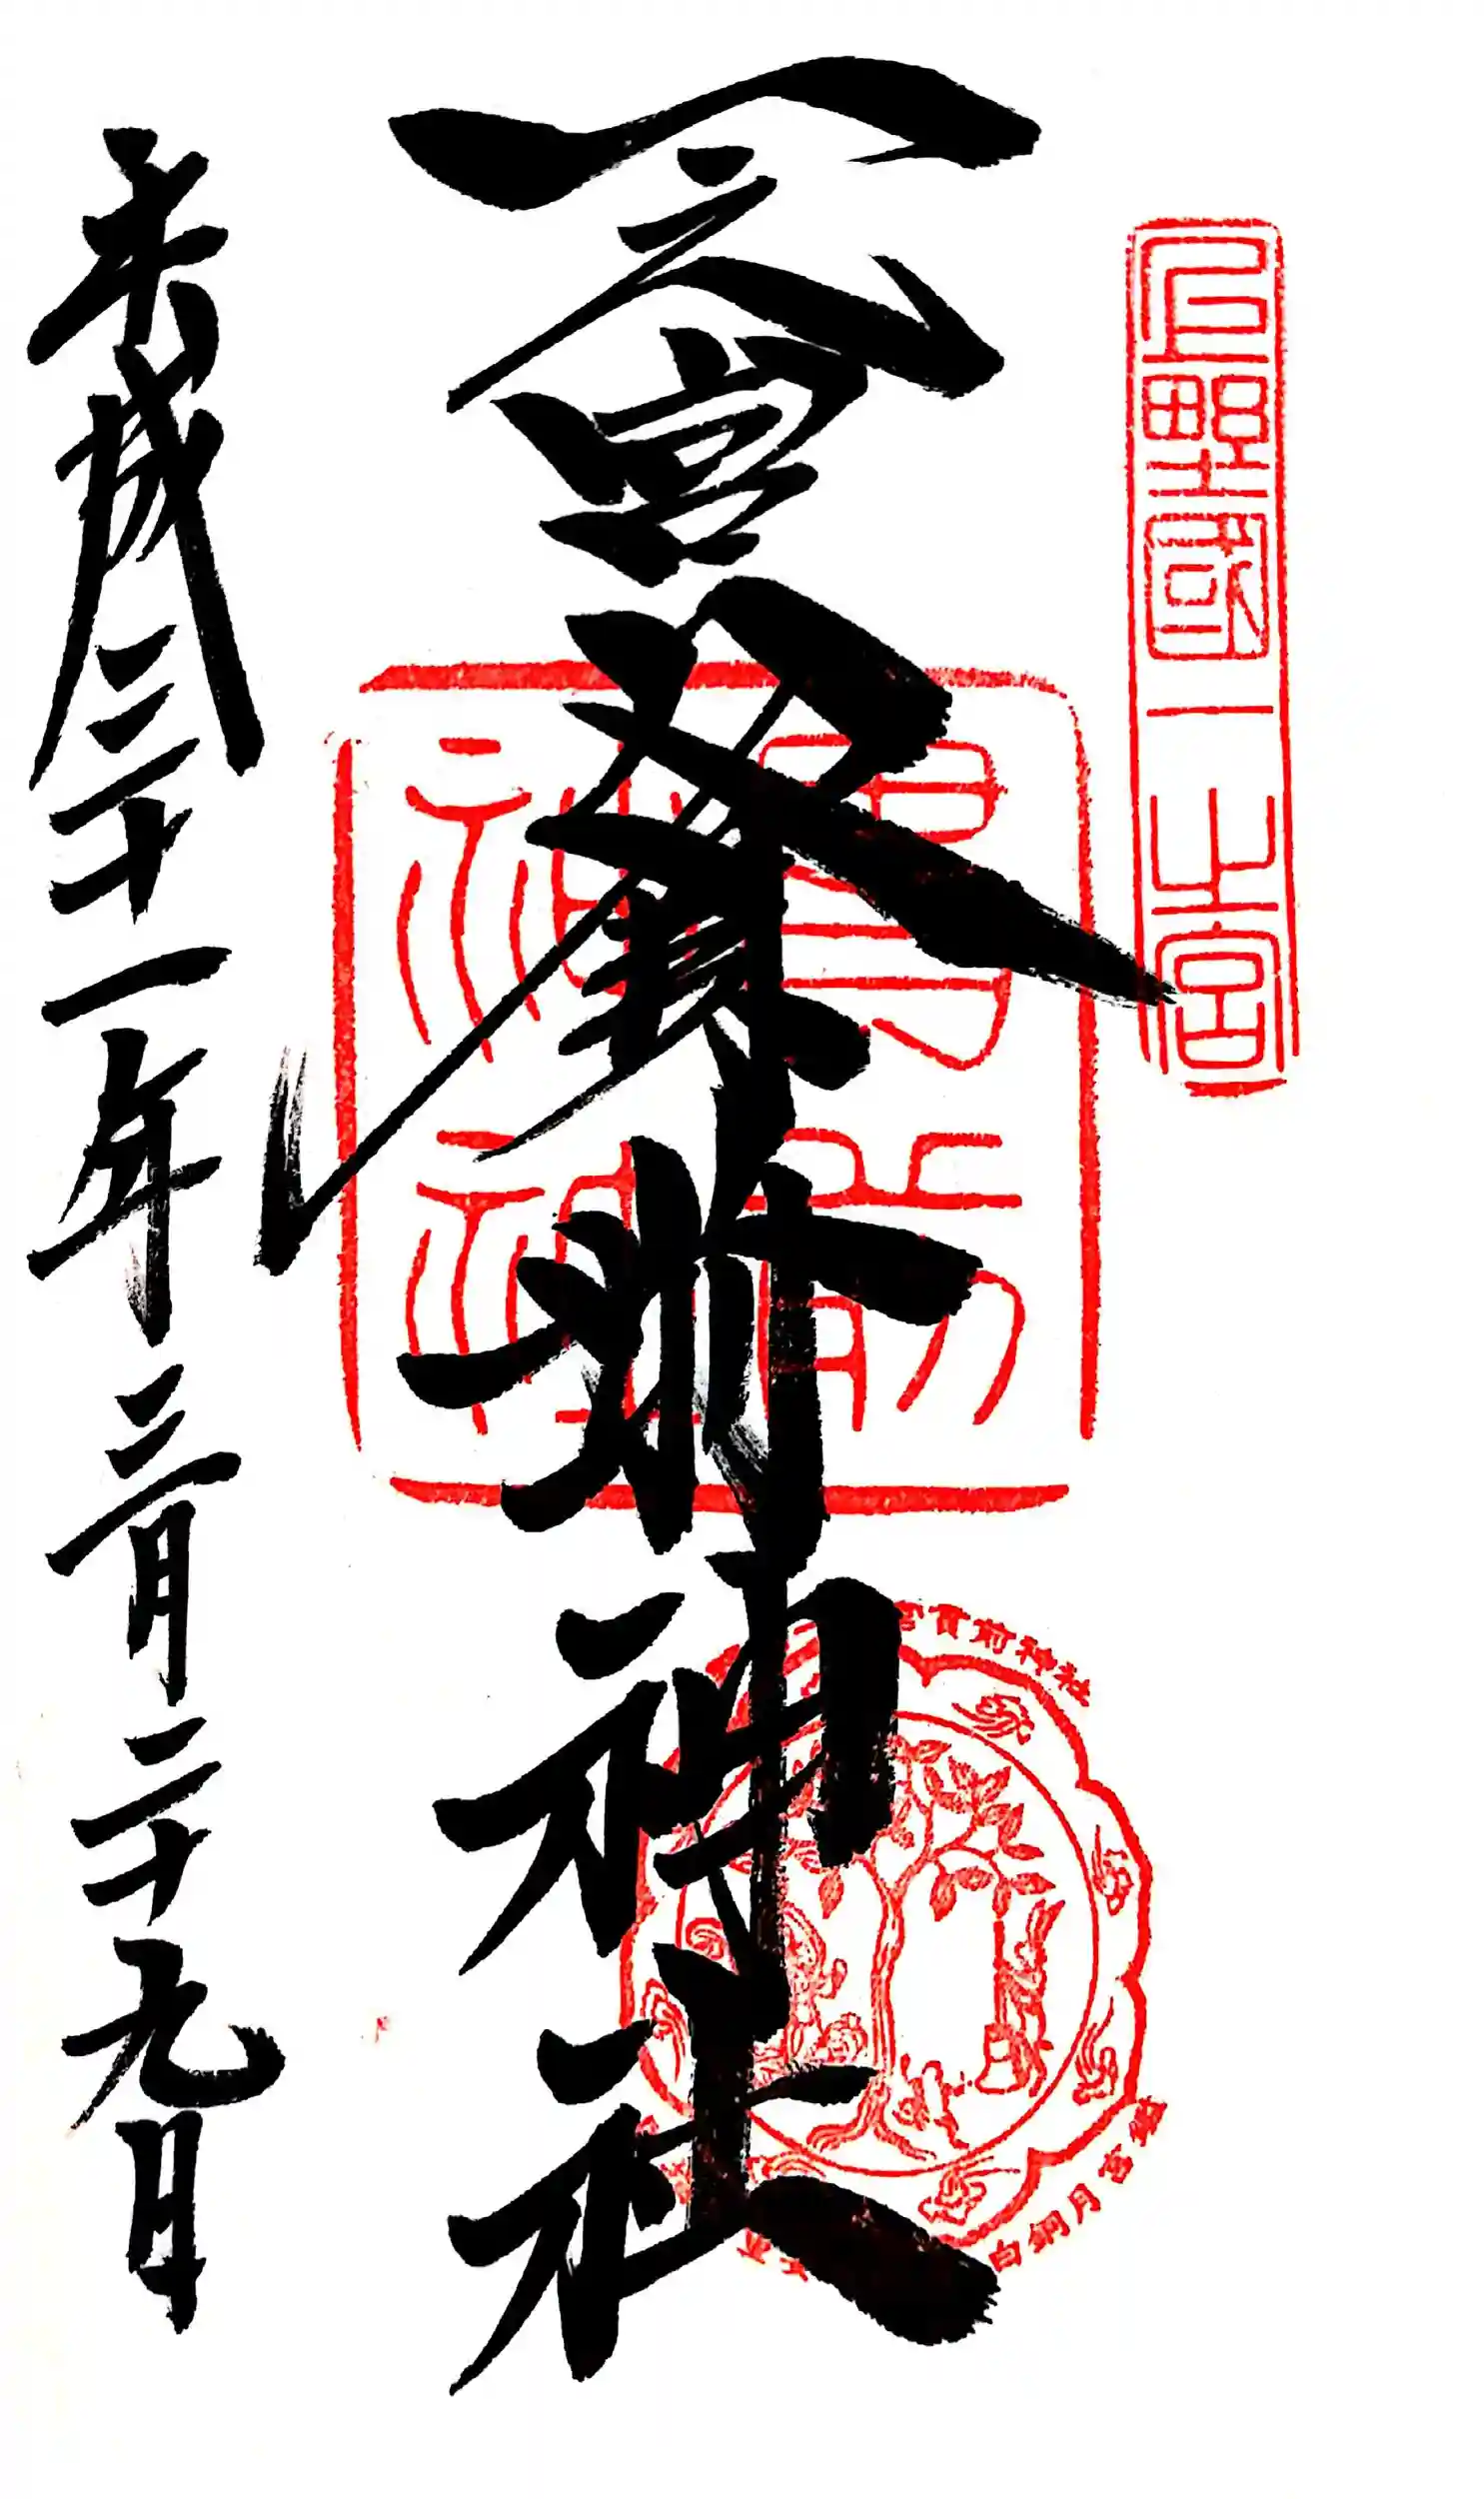 上野國一之宮
一之宮貫前神社
貫前神社
宮貫前神社
白銅月宮鑑
平成三十一年三月二十九日